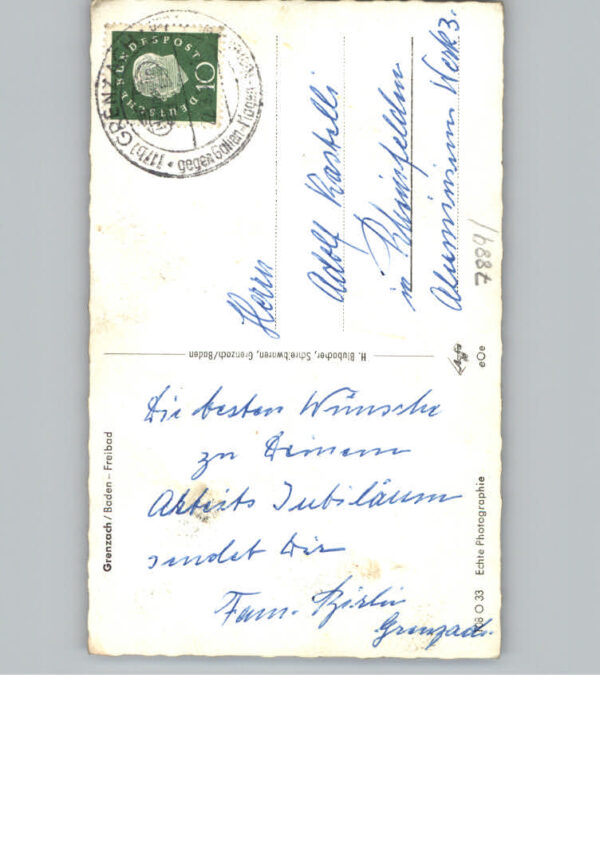 Grenzach / Baden – Freibad
Die besten Wünsche
zu Deinem
Arbeits Jubiläum
sendet Dir
Fam.
Grenzach.
DEUTSCHE BUNDESPOST
10
(17b) GRENZACH
gegen Gallen-Magen-
Herrn
Adolf Kastelli
in Rheinfelden
Aluminium Werk 3.
7884/
H. Blubacher, Schreibwaren, Grenzach/Baden
eOe
O 33 Echte Photographie